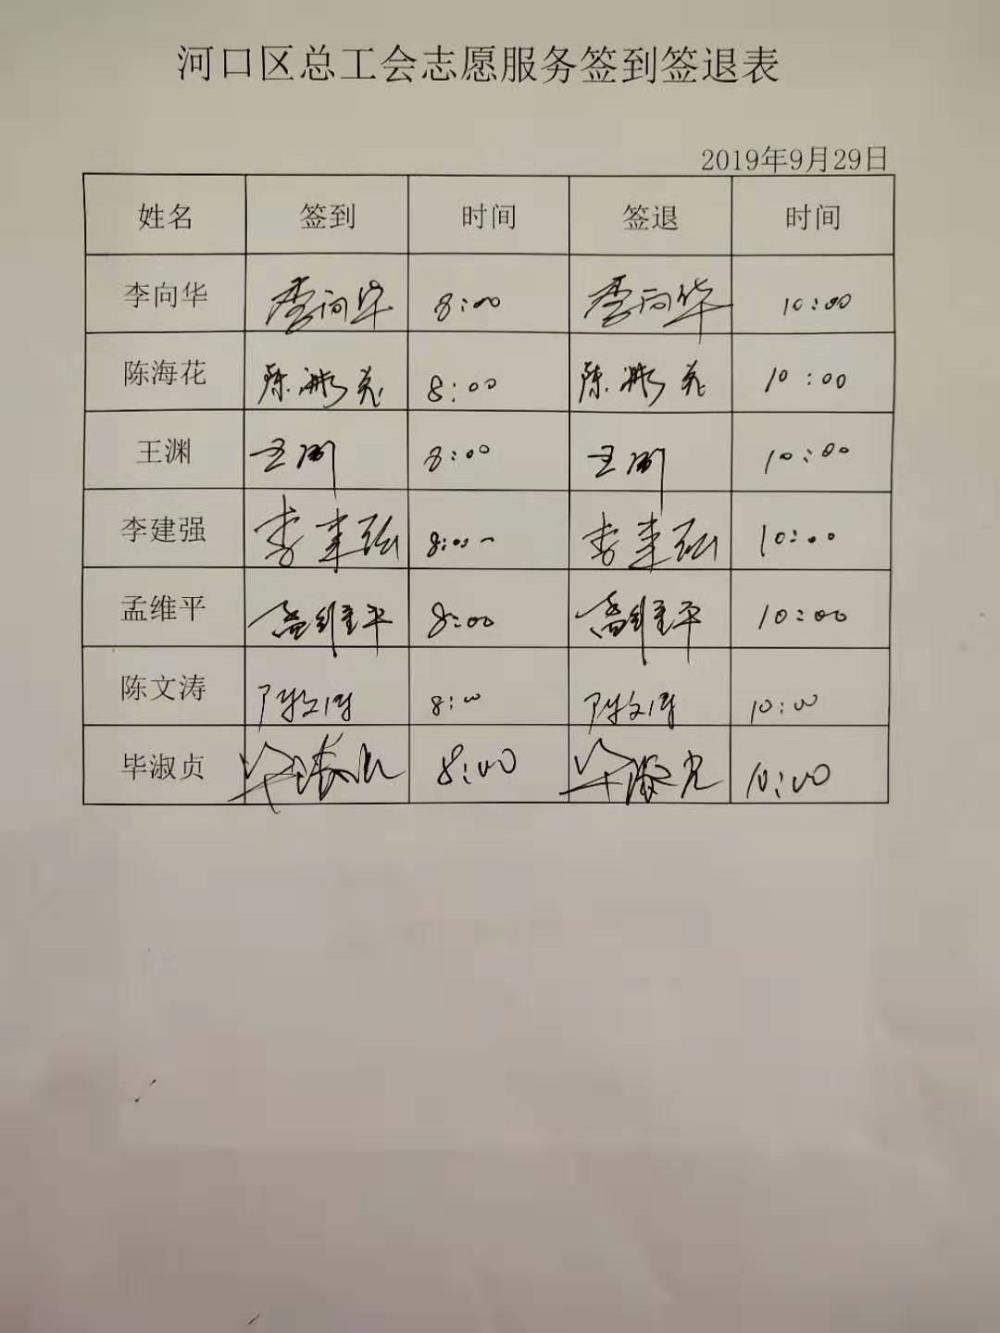 河口区总工会志愿服务签到签退表
2019年9月29日
姓名 签到 时间 签退 时间
李向华 李向华 8:00 李向华 10:00
陈海花 陈海花 8:00 陈海花 10:00
王渊 王渊 8:00 王渊 10:00
李建强 李建强 8:00 李建强 10:00
孟维平 孟维平 8:00 孟维平 10:00
陈文涛 陈文涛 8:00 陈文涛 10:00
毕淑贞 毕淑贞 8:00 毕淑贞 10:00